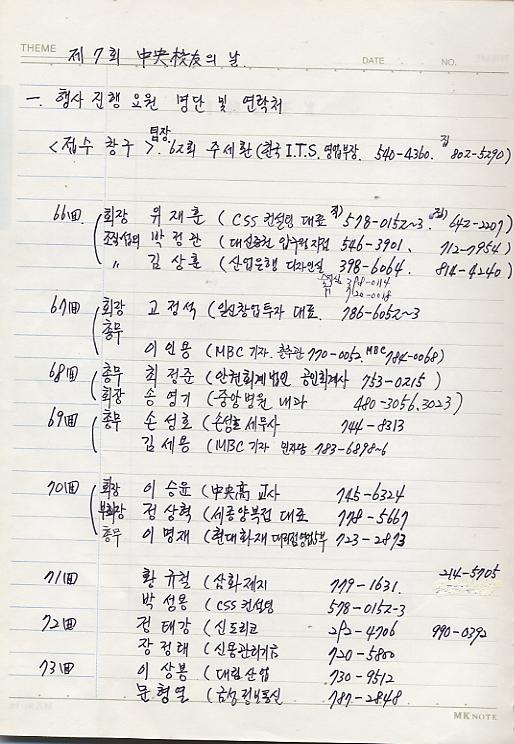 THEME DATE NO.
제 7회 中央校友의 날
一. 행사 진행 요원 명단 및 연락처
<접수 창구> 팀장. 62회 주세환 (한국 I.T.S. 영업부장. 540-4360. 집 802-5290)
66回 회장 유재훈 (CSS 컨설팅 대표 직) 578-0152~3. (집) 642-2207)
조직섭외 박정관 (대신증권 압구정지점 546-3901. 712-7954)
〃 김상훈 (산업은행 디자인실 398-6064. 814-4240)
398-0114
720-0018
67回 회장 고정석 (일신창업투자 대표. 786-6052~3
총무 이인용 (MBC 기자. 출입관 770-0052. MBC 784-0068)
68回 총무 최정준 (안권회계법인 공인회계사 753-0215)
회장 송영기 (중앙병원 내과 480-3056. 3023)
69回 총무 손성호 (손성호 세무사 744-8313
김세용 (MBC 기자 민자당 783-6898~6
70回 회장 이승윤 (中央高 교사 745-6324
부회장 정상혁 (세종양복점 대표 778-5667
총무 이명재 (현대화재 대리점영업부 723-2873
214-5705
71回 황규철 (삼화제지 779-1631.
박성용 (CSS 컨설팅 578-0152-3
72回 정태강 (신도리코 2/2-4706 990-0392
장정태 (신용관리기금 720-5800
73回 이상봉 (대림산업 730-9512
문형열 (금성정보통신 787-2848
MK NOTE